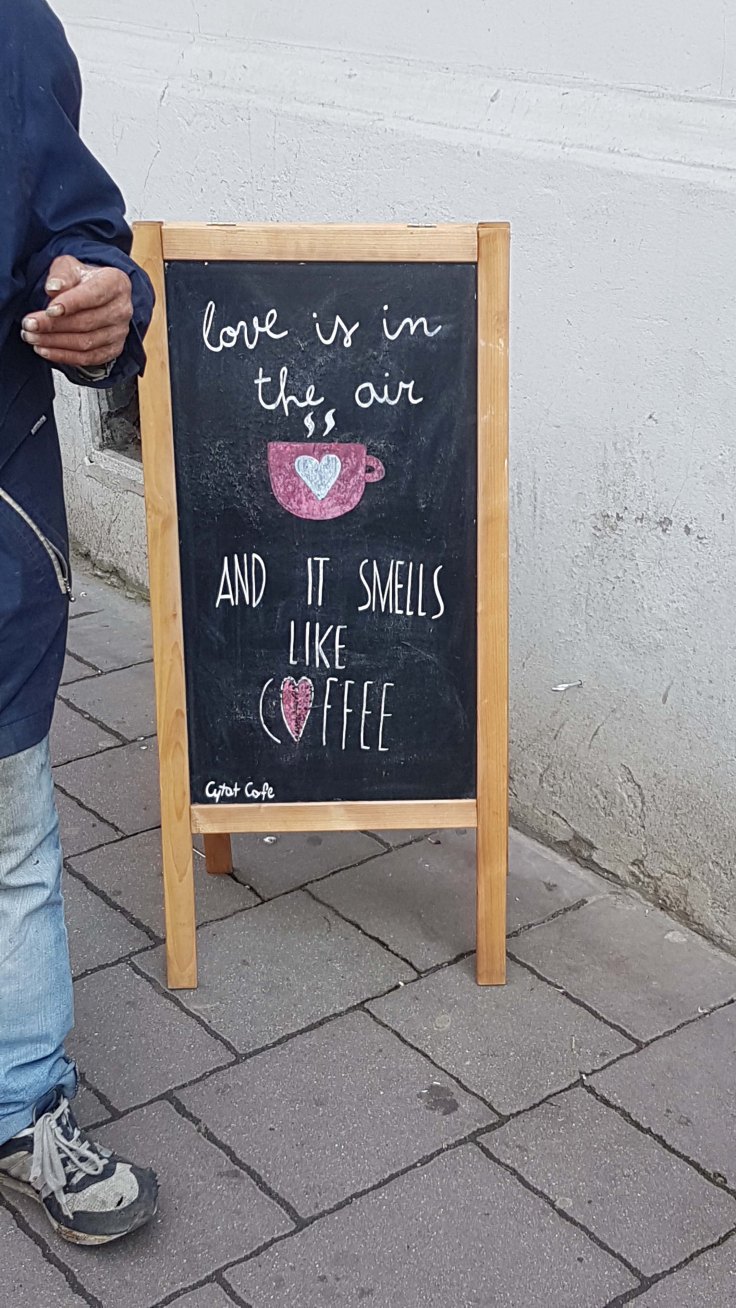 love is in
the air
AND IT SMELLS
LIKE
COFFEE
Cytat Cafe